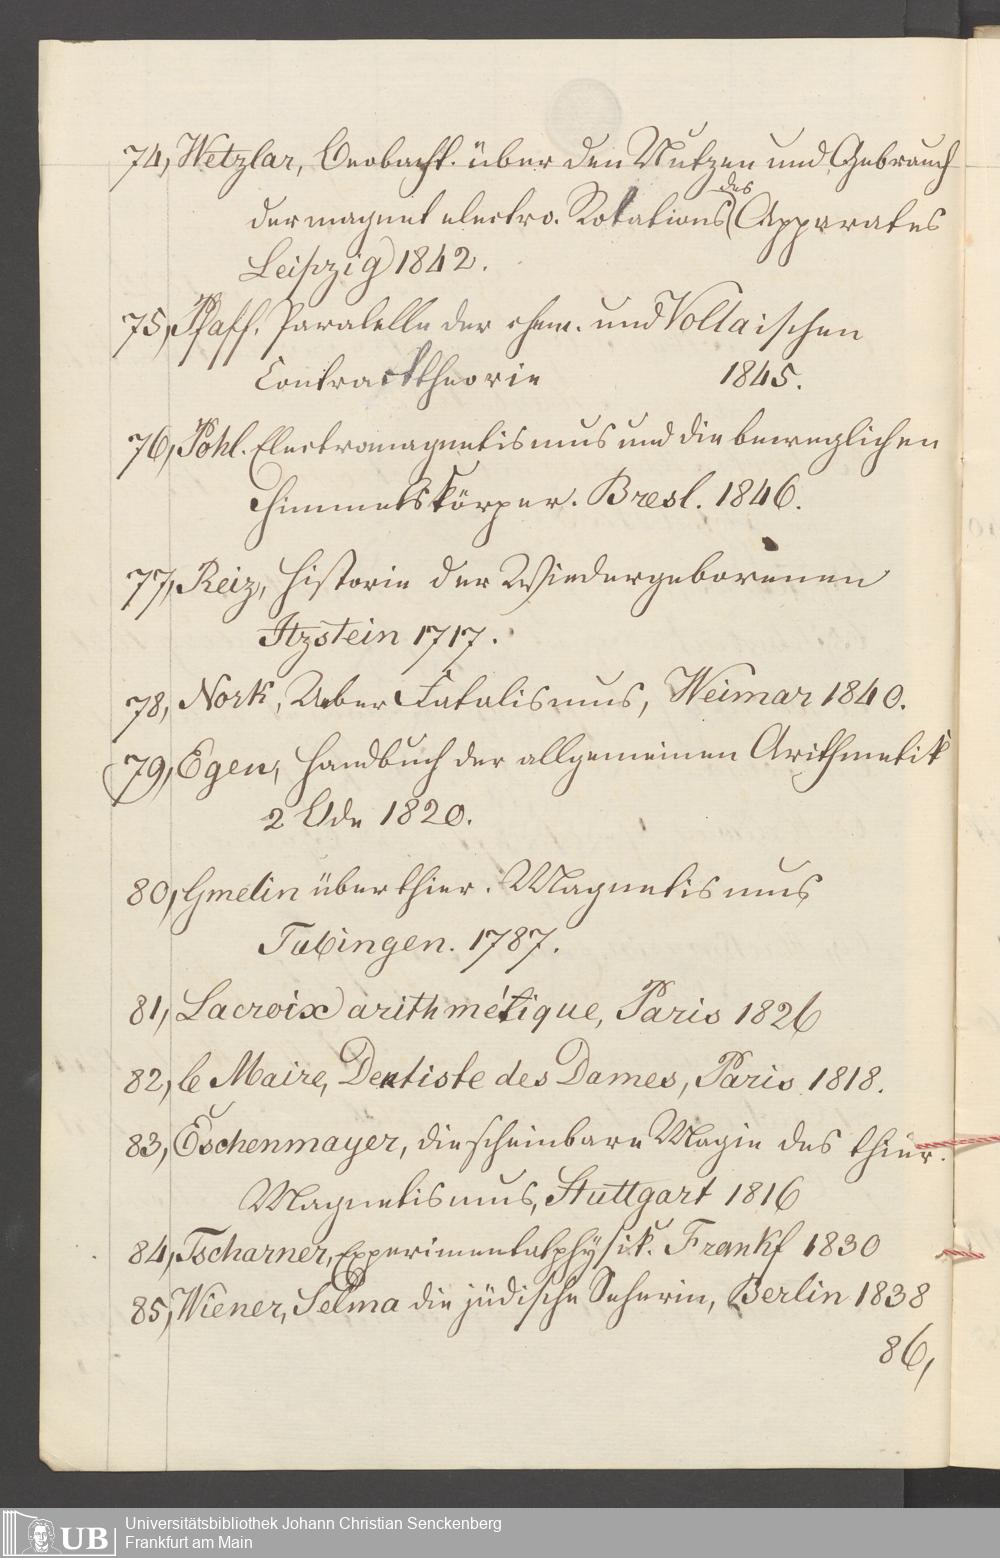 74, Wetzlar, Beobacht. über den Nutzen und Gebrauch
des
der magnet electro. Rotations Apparates
Leipzig 1842.
75, Pfaff. Paralelle der chem. und Voltaischen
Contracttheorie 1845.
76, Pohl. Electromagnetismus und die beweglichen
Himmelskörper. Bresl. 1846.
77, Reiz, Historie der Wiedergeborenen
Itzstein 1717.
78, Nork, Ueber Fatalismus, Weimar 1840.
79, Egen, Handbuch der allgemeinen Arithmetik
2 Bde 1820.
80, Gmelin über thier. Magnetismus
Tubingen. 1787.
81, Lacroix arithmétique, Paris 1826
82, le Maire, Dentiste des Dames, Paris 1818.
83, Eschenmayer, die scheinbare Magie des thier.
Magnetismus, Stuttgart 1816
84, Tscharner, Experimentalphysik. Frankf 1830
85, Wiener, Selma die jüdische Seherin, Berlin 1838
86,
UB
Universitätsbibliothek Johann Christian Senckenberg
Frankfurt am Main